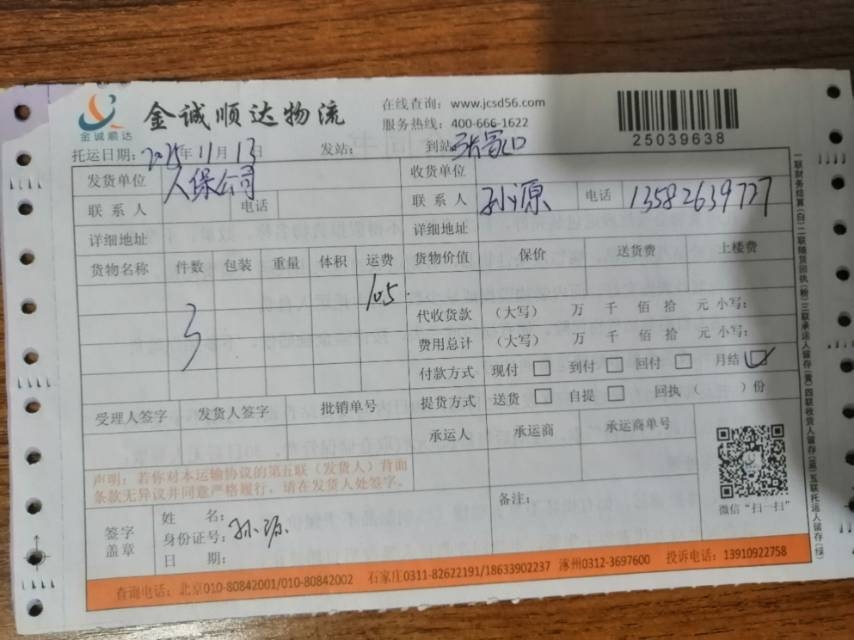 金诚顺达
金诚顺达物流
在线查询：www.jcsd56.com
服务热线：400-666-1622
25039638
托运日期：2025年11月13日 发站： 到站：张家口
发货单位 人保公司 收货单位
联系人 电话 联系人 孙源 电话 13582639727
详细地址 详细地址
货物名称 件数 包装 重量 体积 运费 货物价值 保价 送货费 上楼费
3 105
代收货款 （大写） 万 千 佰 拾 元 小写：
费用总计 （大写） 万 千 佰 拾 元 小写：
付款方式 现付 □ 到付 □ 回付 □ 月结 ☑
提货方式 送货 □ 自提 □ 回执（ ）份
受理人签字 发货人签字 批销单号
承运人 承运商 承运商单号
声明：若你对本运输协议的第五联（发货人）背面
条款无异议并同意严格履行，请在发货人处签字。
微信“扫一扫”
签字
盖章
姓 名：
身份证号：孙源
日 期：
备注：
查询电话：北京010-80842001/010-80842002 石家庄0311-82622191/18633902237 涿州0312-3697600 投诉电话：13910922758
一联财务结算（白）二联随货回执（粉）三联承运人留存（黄）四联收货人留存（蓝）五联托运人留存（绿）